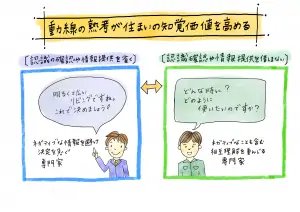 動線の熟考が住まいの知覚価値を高める
【認識の確認や情報提供を省く】
【認識の確認や情報提供を惜しまない】
明るくて広い
リビングですね。
これで決めましょう!
どんな時に?
どのように
使いたいのですか?
ネガティブな情報を避けて
決定を急ぐ
専門家
ネガティブなことも含む
相互理解を重んじる
専門家